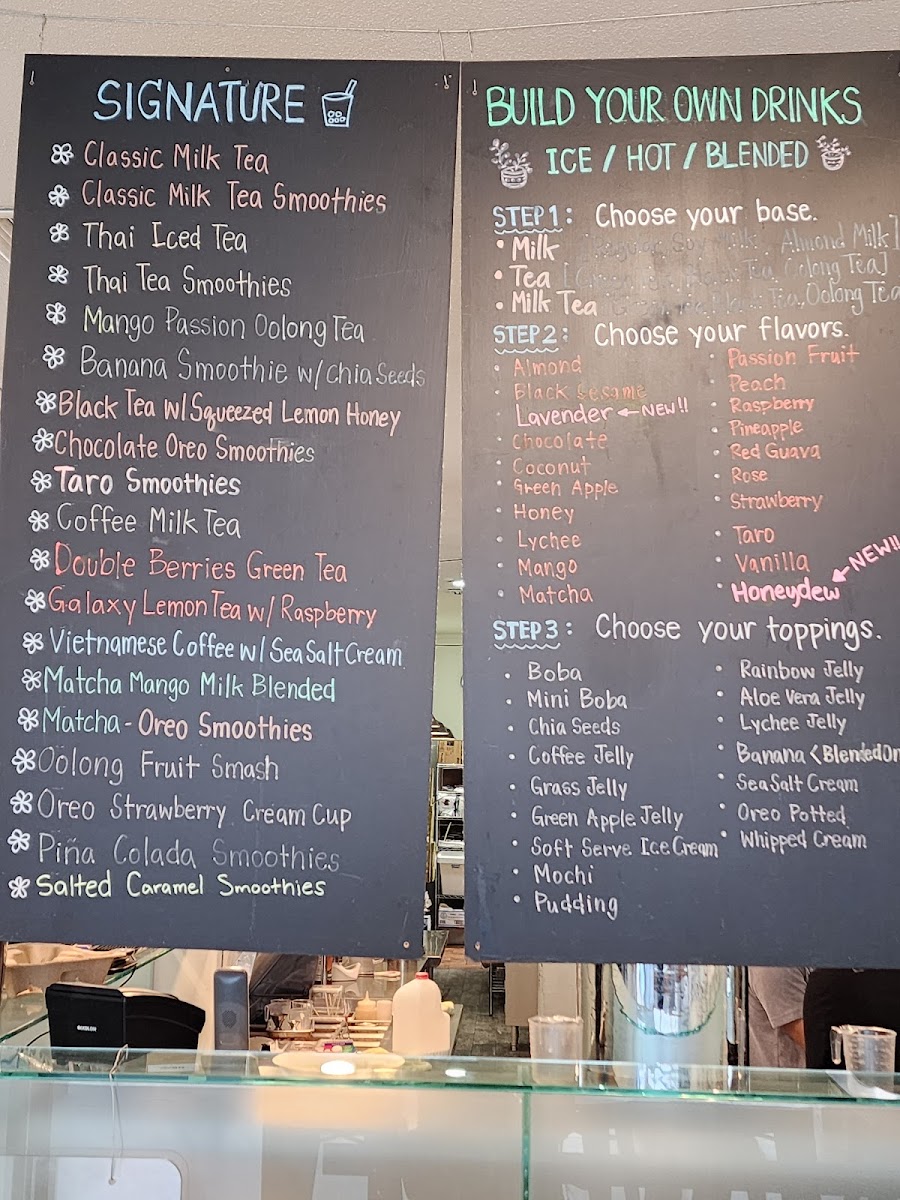 SIGNATURE
Classic Milk Tea
Classic Milk Tea Smoothies
Thai Iced Tea
Thai Tea Smoothies
Mango Passion Oolong Tea
Banana Smoothie w/ Chia Seeds
Black Tea w/ Squeezed Lemon Honey
Chocolate Oreo Smoothies
Taro Smoothies
Coffee Milk Tea
Double Berries Green Tea
Galaxy Lemon Tea w/ Raspberry
Vietnamese Coffee w/ Sea Salt Cream
Matcha Mango Milk Blended
Matcha - Oreo Smoothies
Oolong Fruit Smash
Oreo Strawberry Cream Cup
Piña Colada Smoothies
Salted Caramel Smoothies
BUILD YOUR OWN DRINKS
ICE / HOT / BLENDED
STEP 1: Choose your base.
• Milk [Regular, Soy Milk, Almond Milk]
• Tea [ Tea, Oolong Tea]
• Milk Tea Tea, Oolong Tea
STEP 2: Choose your flavors.
• Almond
• Black Sesame
• Lavender ← NEW!!
• Chocolate
• Coconut
• Green Apple
• Honey
• Lychee
• Mango
• Matcha
• Passion Fruit
• Peach
• Raspberry
• Pineapple
• Red Guava
• Rose
• Strawberry
• Taro
• Vanilla
• Honeydew ← NEW!!
STEP 3: Choose your toppings.
• Boba
• Mini Boba
• Chia Seeds
• Coffee Jelly
• Grass Jelly
• Green Apple Jelly
• Soft Serve Ice Cream
• Mochi
• Pudding
• Rainbow Jelly
• Aloe Vera Jelly
• Lychee Jelly
• Banana < Blended On
• Sea Salt Cream
• Oreo Potted
• Whipped Cream